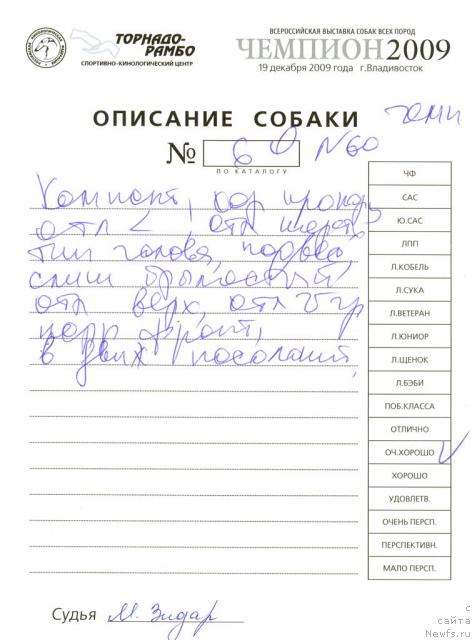 ТОРНАДО-РАМБО
СПОРТИВНО-КИНОЛОГИЧЕСКИЙ ЦЕНТР
ВСЕРОССИЙСКАЯ ВЫСТАВКА СОБАК ВСЕХ ПОРОД
ЧЕМПИОН 2009
19 декабря 2009 года г.Владивосток
ОПИСАНИЕ СОБАКИ
№ 60 N60
ПО КАТАЛОГУ
хор
отл отл
тип голова, подрова,
слиш брыластый,
отл верх, отл
фронт,
в движ
ЧФ
САС
Ю.САС
ЛПП
Л.КОБЕЛЬ
Л.СУКА
Л.ВЕТЕРАН
Л.ЮНИОР
Л.ЩЕНОК
Л.БЭБИ
ПОБ.КЛАССА
ОТЛИЧНО
ОЧ.ХОРОШО
ХОРОШО
УДОВЛЕТВ.
ОЧЕНЬ ПЕРСП.
ПЕРСПЕКТИВН.
МАЛО ПЕРСП.
Судья М. Зидар
с
сайта
Newfs.ru